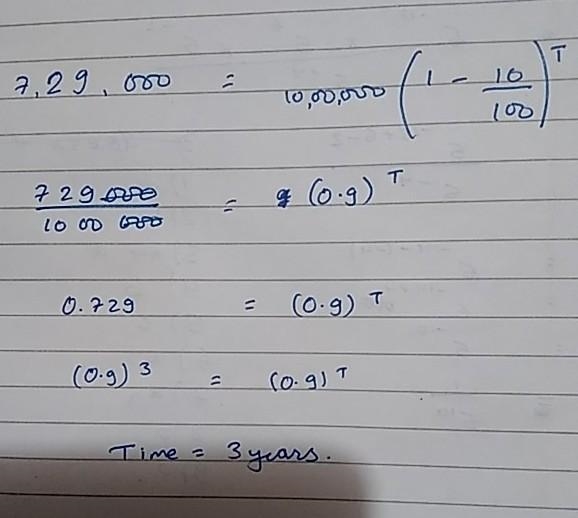 7,29,000 = 10,00,000 (1 - 10/100)^T
729000/1000000 = (0.9)^T
0.729 = (0.9)^T
(0.9)^3 = (0.9)^T
Time = 3 years.